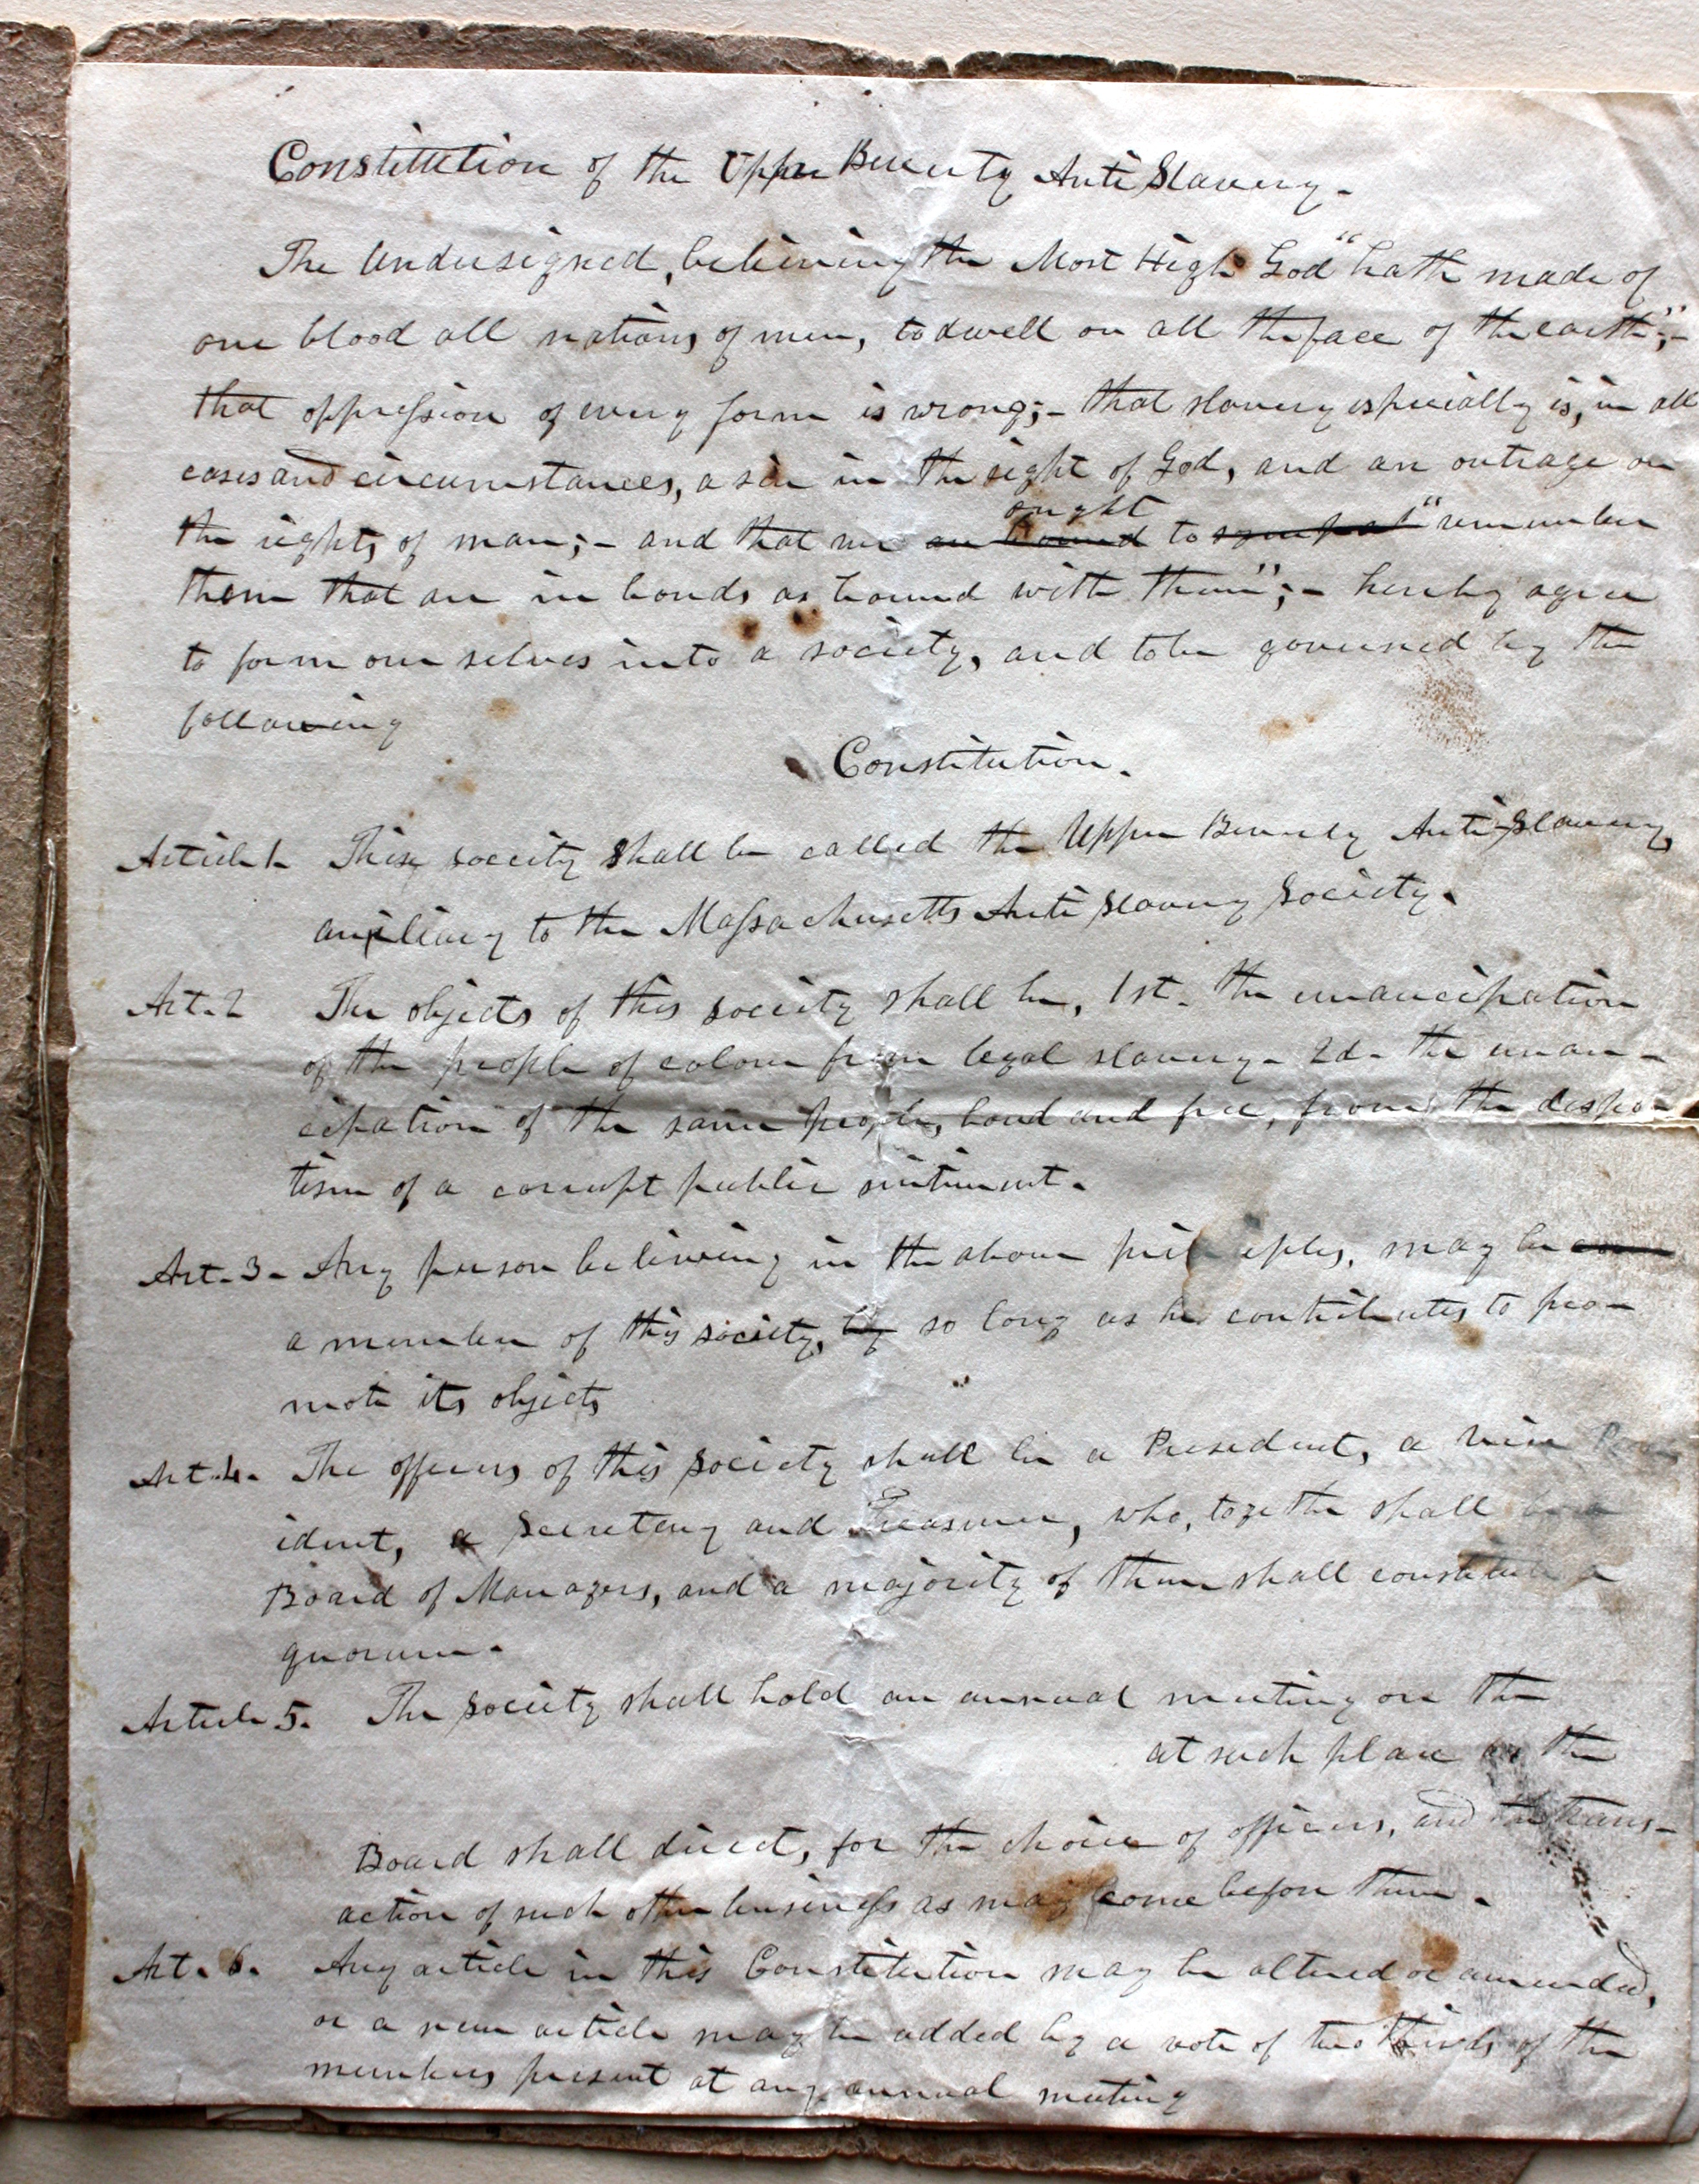 Constitution of the Upper Beverly Anti Slavery.
The Undersigned, believing the Most High God "hath made of
one blood all nations of men, to dwell on all the face of the earth";-
that oppression of every form is wrong;- that slavery especially is, in all
cases and circumstances, a sin in the sight of God, and an outrage on
ought
the rights of man;- and that we are bound to "remember
them that are in bonds as bound with them";- hereby agree
to form our selves into a society, and to be governed by the
following
Constitution.
Article 1. This society shall be called the Upper Beverly Anti-Slavery,
auxiliary to the Massachusetts Anti Slavery Society.
Art. 2 The objects of this society shall be, 1st. the emancipation
of the people of colour from legal slavery- 2d- the eman-
cipation of the same people, bond and free, from the despo-
tism of a corrupt public sentiment.
Art. 3- Any person believing in the above principles, may be
a member of this society, by so long as he contributes to pro-
mote its objects
Art. 4. The officers of this society shall be a President, a Vice Pres
ident, a Secretary and Treasurer, who, together shall be a
Board of Managers, and a majority of them shall constitute a
quorum.
Article 5. The society shall hold an annual meeting on the
at such place as the
Board shall direct, for the choice of officers, and the trans-
action of such other business as may come before them.
Art. 6. Any article in this Constitution may be altered or amended,
or a new article may be added by a vote of two thirds of the
members present at any annual meeting